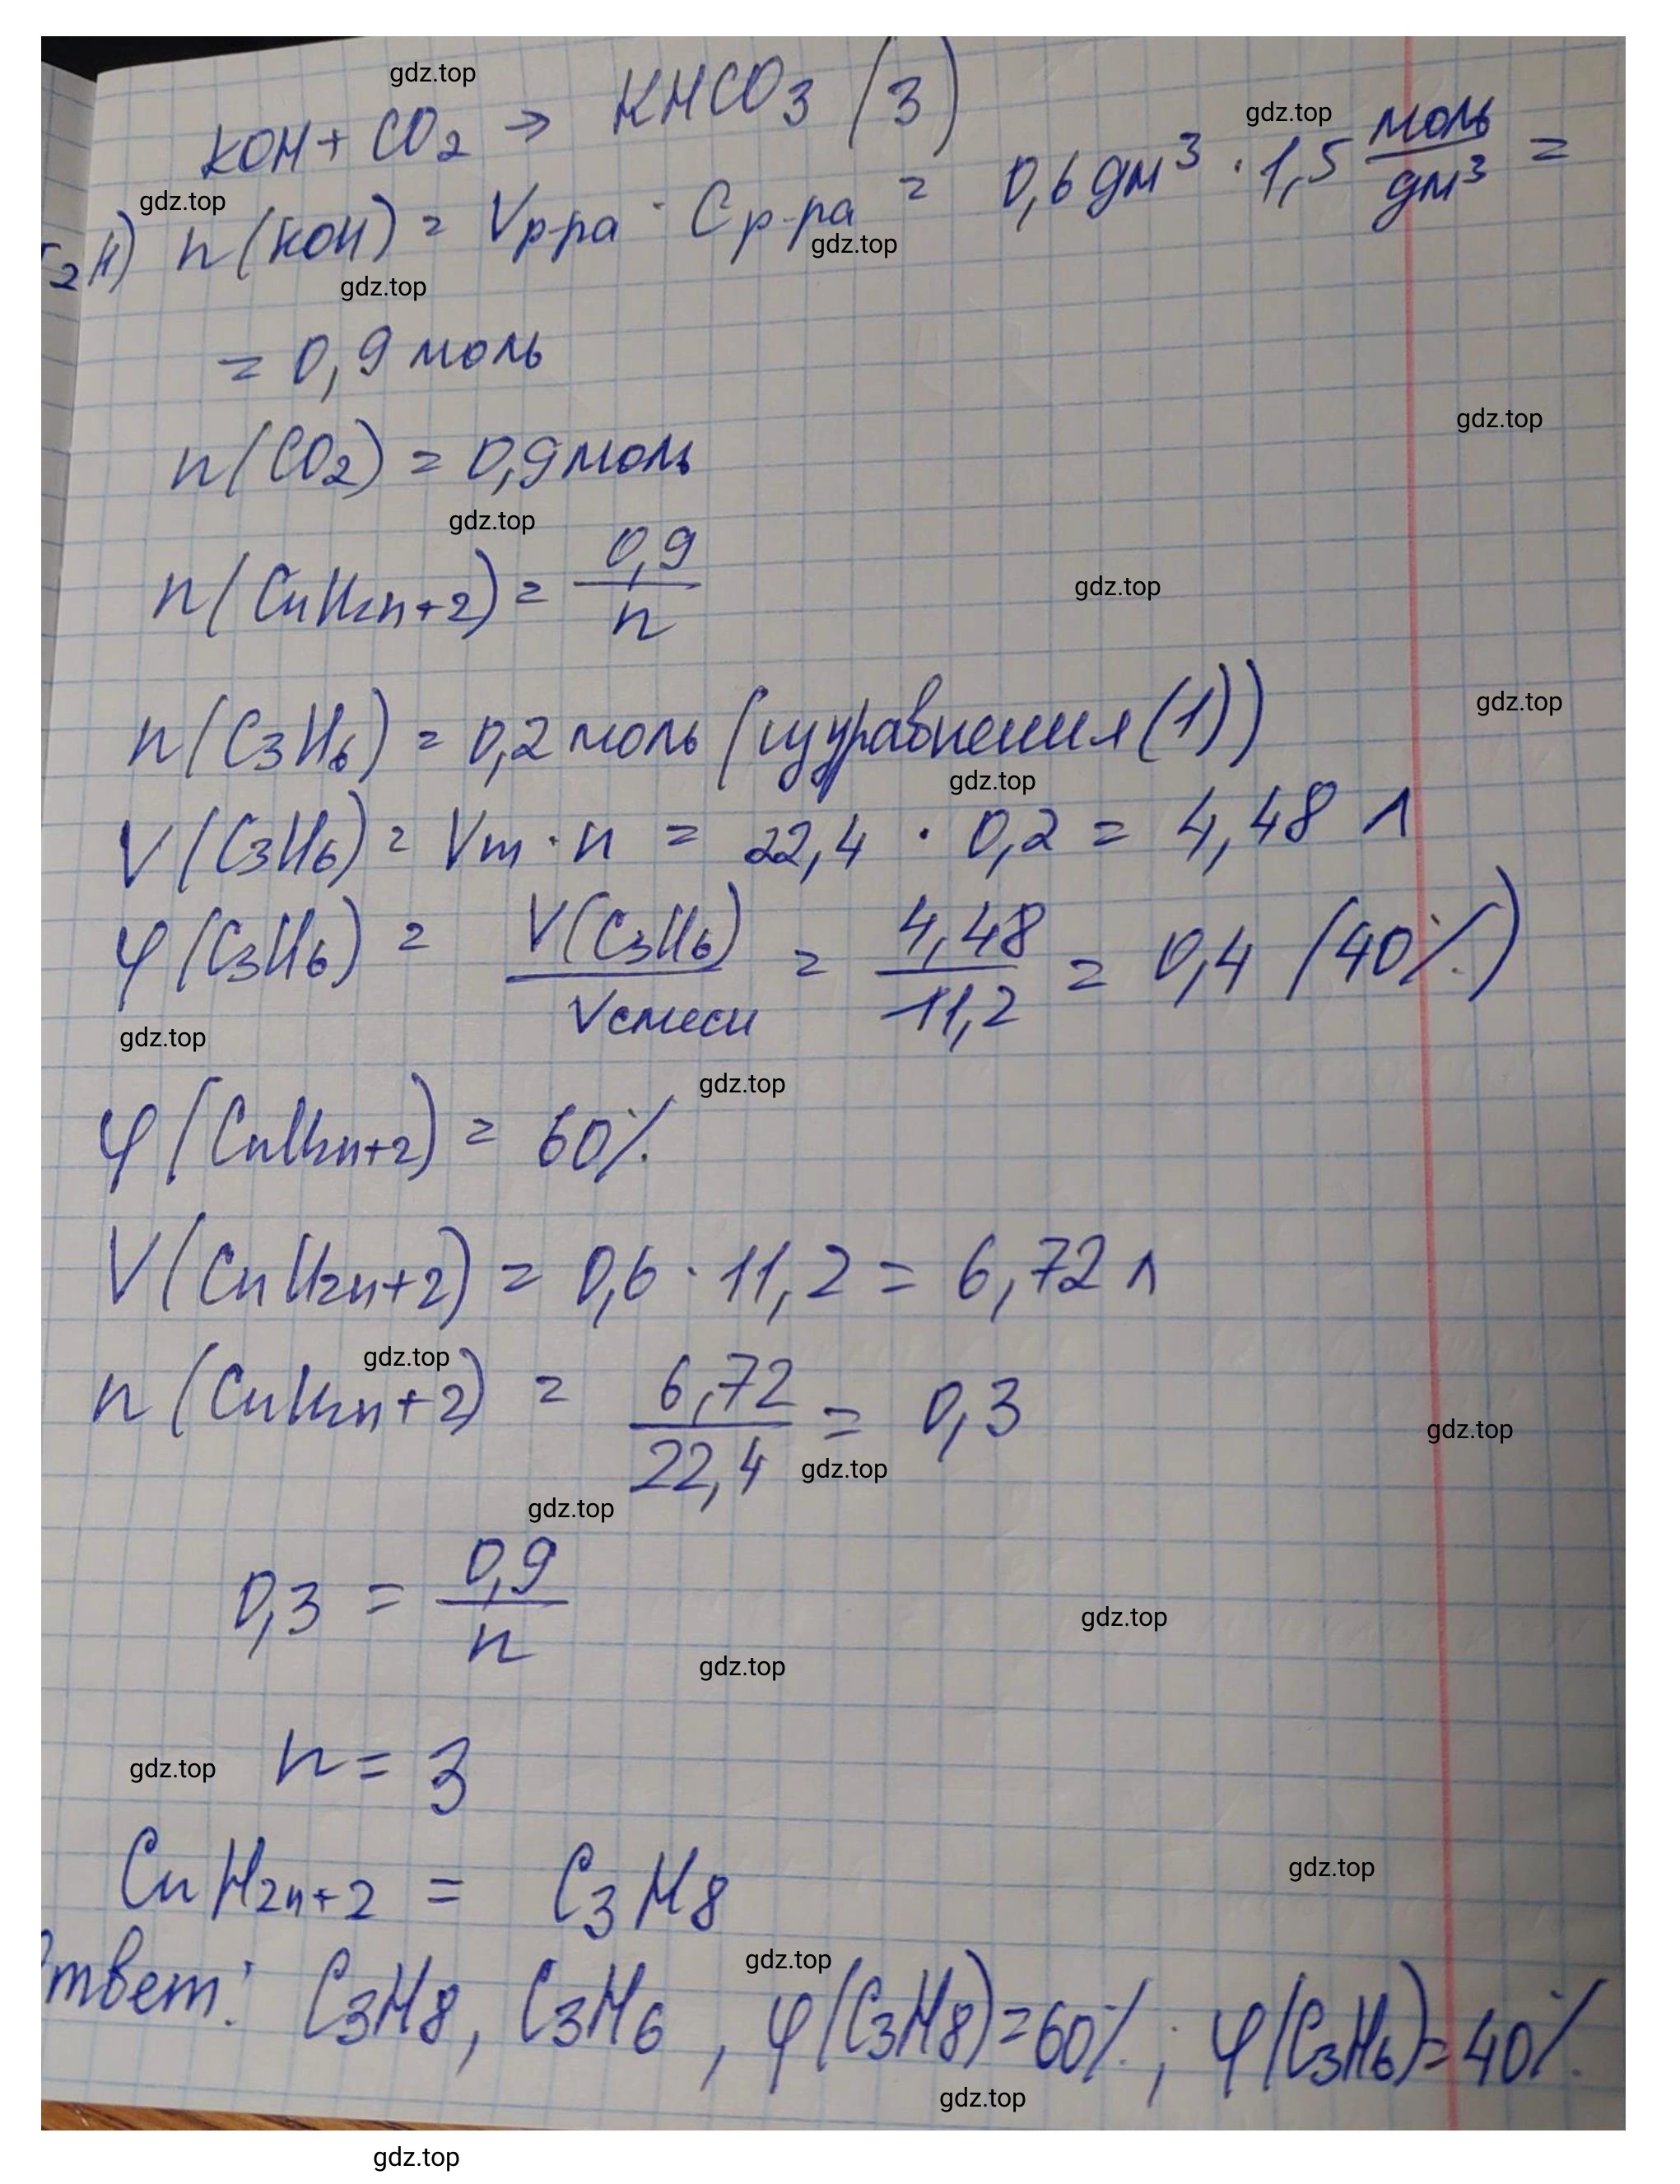 gdz.top
KOH + CO2 → KHCO3 (3)
gdz.top
gdz.top
2H) n(KOH) = Vр-ра · Cр-ра = 0,6 дм³ · 1,5 моль/дм³ =
gdz.top
gdz.top
= 0,9 моль
gdz.top
n(CO2) = 0,9 моль
gdz.top
n(CnH2n+2) = 0,9/n
gdz.top
gdz.top
n(C3H6) = 0,2 моль (из уравнения (1))
gdz.top
V(C3H6) = Vm · n = 22,4 · 0,2 = 4,48 л
φ(C3H6) = V(C3H6)/Vсмеси = 4,48/11,2 = 0,4 (40%)
gdz.top
gdz.top
φ(CnH2n+2) = 60%
V(CnH2n+2) = 0,6 · 11,2 = 6,72 л
gdz.top
n(CnH2n+2) = 6,72/22,4 = 0,3
gdz.top
gdz.top
gdz.top
0,3 = 0,9/n
gdz.top
gdz.top
gdz.top n = 3
gdz.top
CnH2n+2 = C3H8
gdz.top
твет: C3H8, C3H6, φ(C3H8)=60%; φ(C3H6)=40%
gdz.top
gdz.top